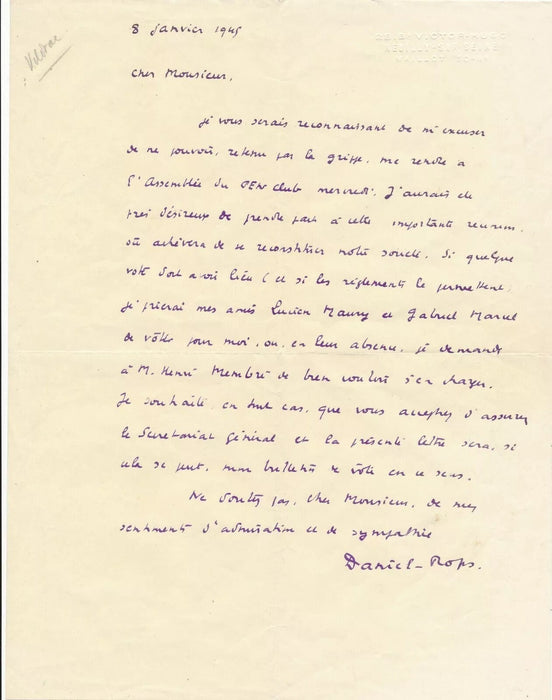 Vildrac
8 Janvier 1945
28 BIS VICTOR HUGO
NEUILLY-SUR-SEINE
MAILLOT
Cher Monsieur,
je vous serais reconnaissant de m'excuser
de ne pouvoir, retenu par la grippe, me rendre à
l'Assemblée du PEN Club mercredi. J'aurais été
très désireux de prendre part à cette importante réunion,
où achèvera de se reconstituer notre société. Si quelque
vote doit avoir lieu (et si les règlements le permettent)
je prierai mes amis Lucien Maury et Gabriel Marcel
de voter pour moi, ou, en leur absence, je demande
à M. Henri Membré de bien vouloir s'en charger.
Je souhaite, en tout cas, que vous acceptiez d'assurer
le Secrétariat Général et la présente lettre sera, si
cela se peut, mon bulletin de vote en ce sens.
Ne doutez pas, cher Monsieur, de mes
sentiments d'admiration et de sympathie
Daniel-Rops.